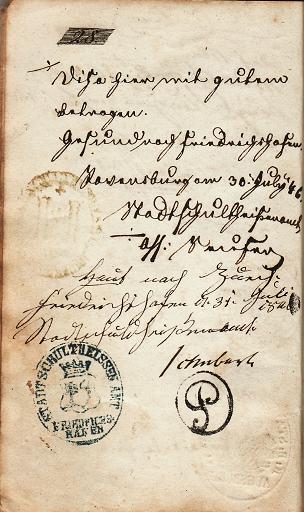 28
Diesa hier mit gutem
betragen.
Gesund nach Friedrichshafen
Ravensburg am 30. July 46
Stadtschultheißenamt
Ass:
nach
Friedrichshafen d. 31. Juli
Stadtschultheißenamt
Schubart
STADTSCHULTHEISSEN AMT
FRIEDRICHS-
HAFEN
P